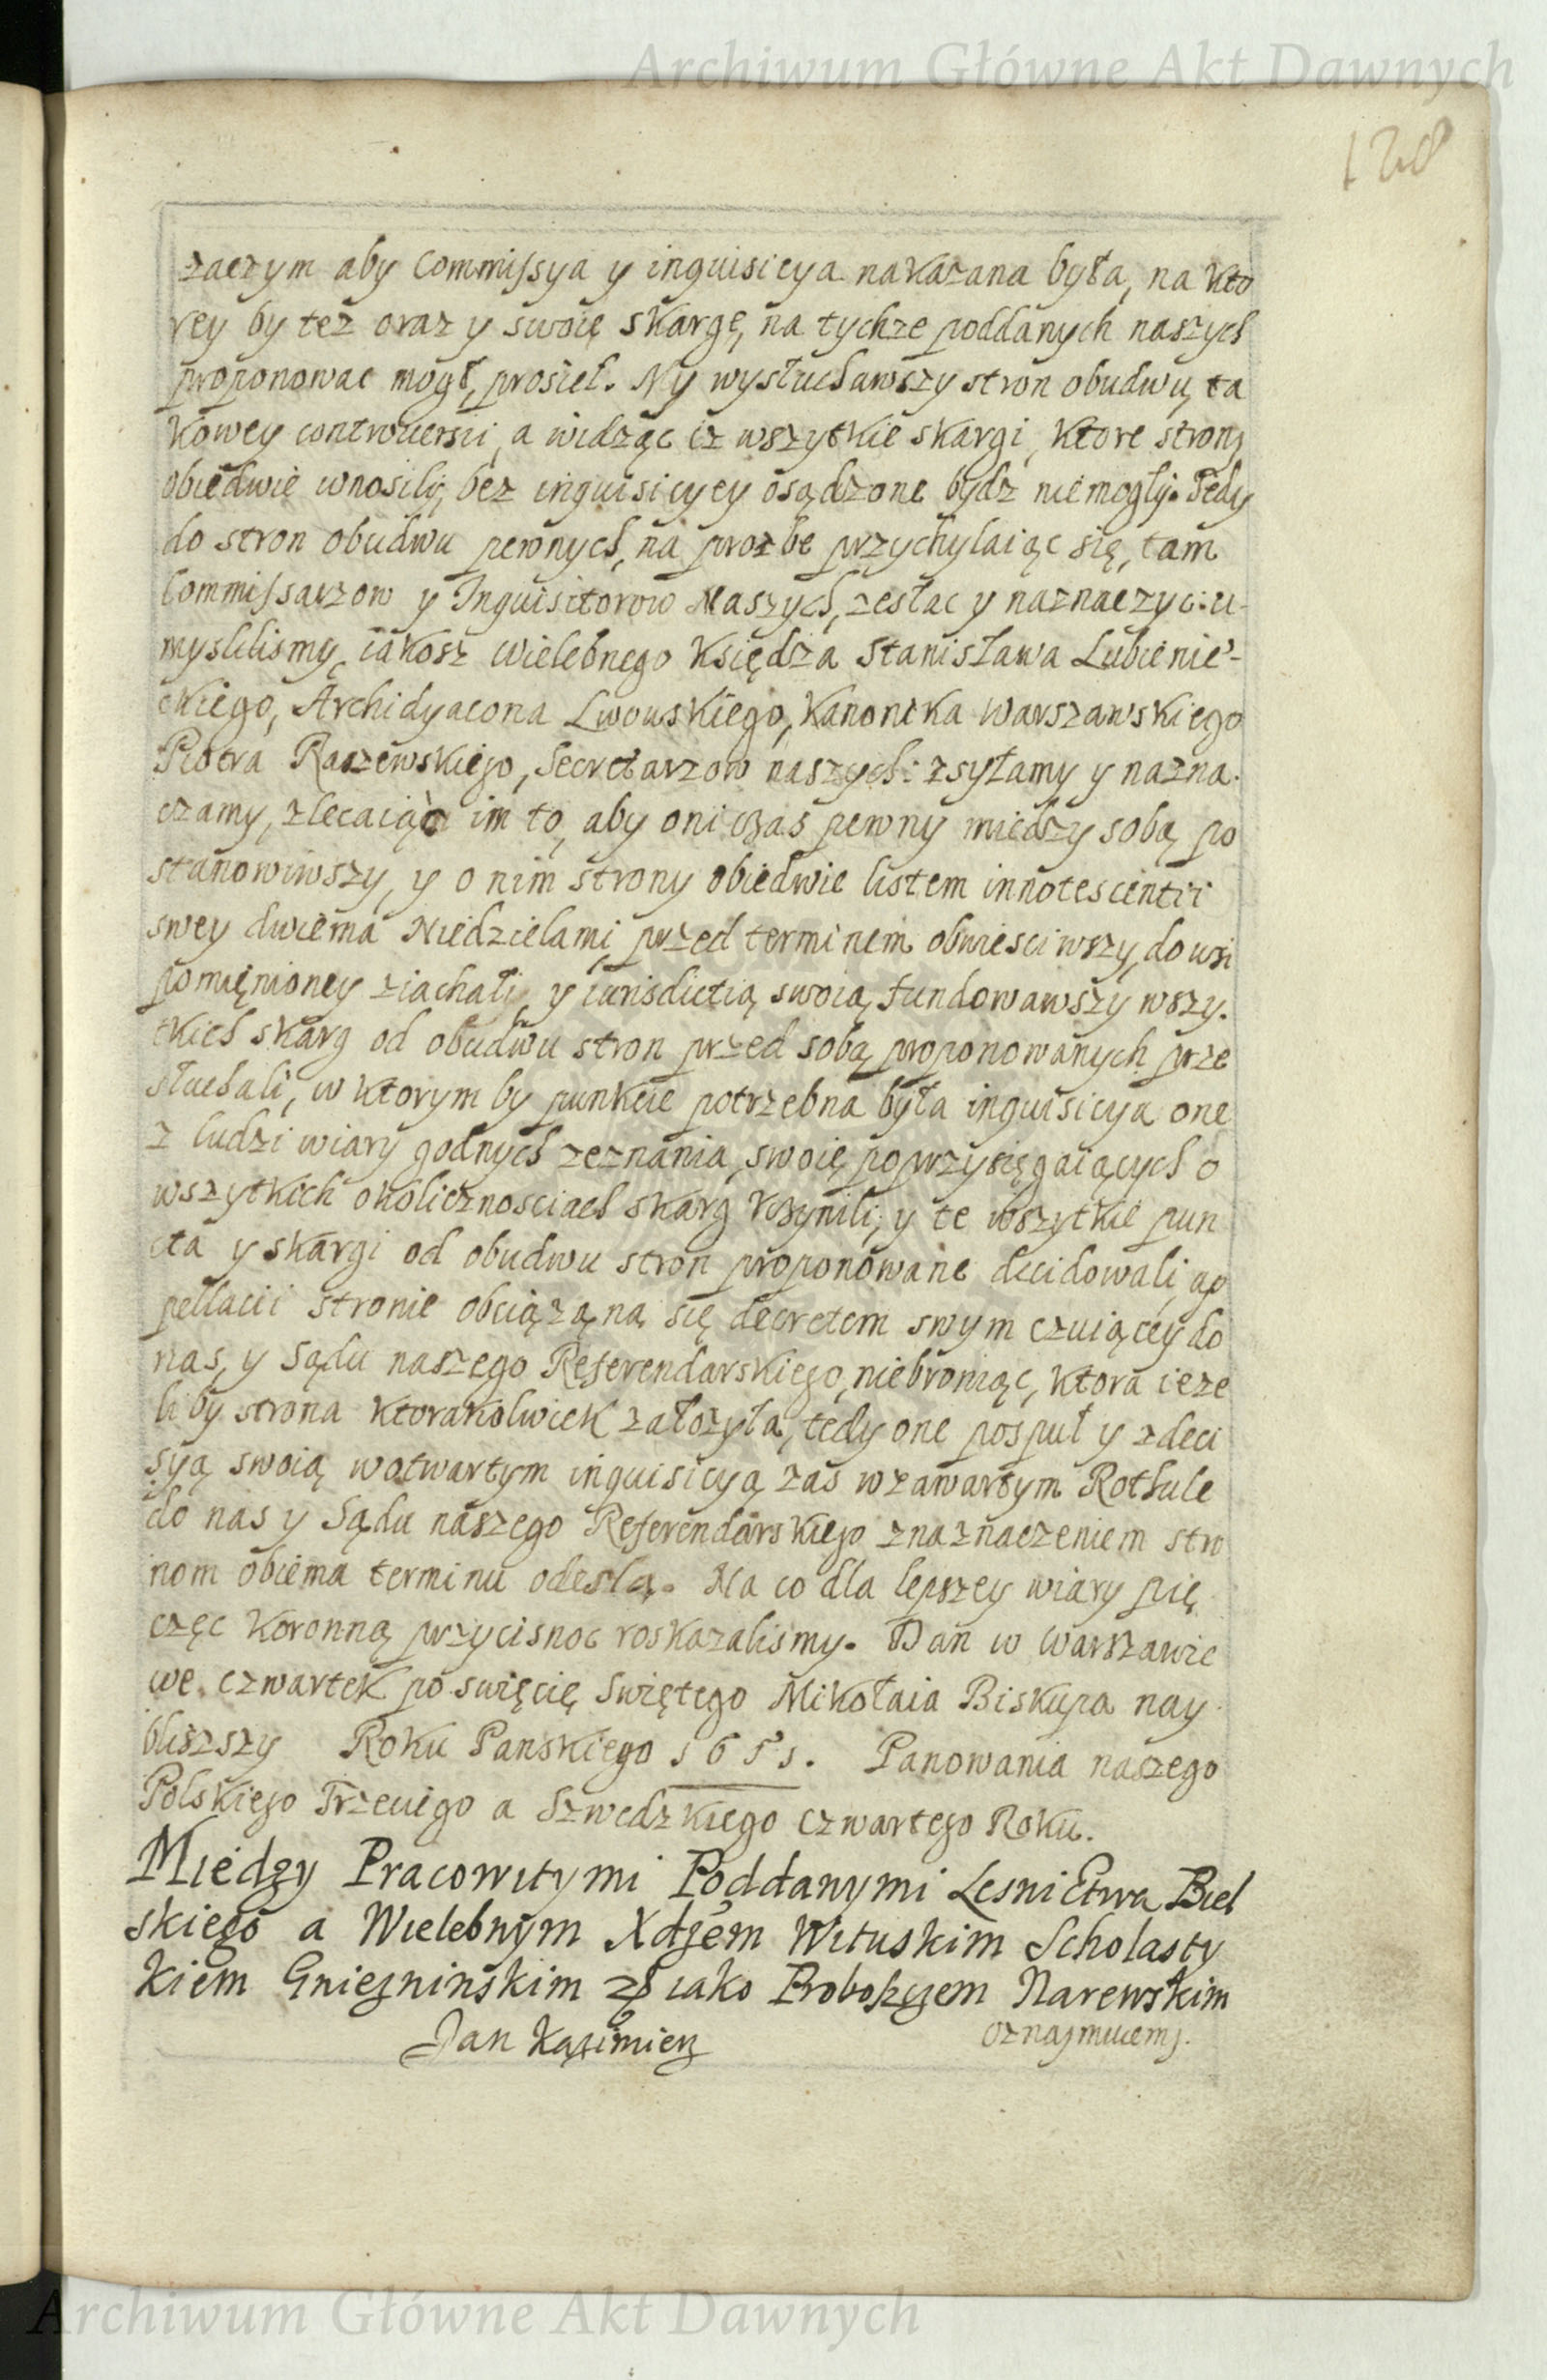 Archiwum Główne Akt Dawnych
128
zaczym aby Commissya y inquisicya nakazana była, na kto
rey by też oraz y swoię skargę, na tychże poddanych naszych
proponowac mogł, prosieł. My wysłuchawszy stron obudwu, ta
kowey controuersii, a widząc iz wszytkie skargi, ktore strony
obiedwie wnosiły, bez inquisicyey osądzone bydz niemogły. Tedy
do stron obudwu pewnych, na prozbe przychylaiąc się, tam
Commissarzow y Inquisitorow Naszych, zesłac y naznaczyc u-
myslilismy, iakosz wielebnego Księdza Stanisława Lubienie-
ckiego, Archidyacona Lwowskiego, Kanonika Warszawskiego
Piotra Raszewskiego, Secretarzow naszych: zsyłamy y nazna-
czamy, zlecaiąc im to, aby oni czas pewny miedzy sobą po
stanowiwszy, y o nim strony obiedwie listem innotescentii
swey dwiema Niedzielami przed terminem obwiesciwszy, do wsi
pomięnioney ziachali, y iurisdictią swoią fundowawszy wszy-
tkich skarg od obudwu stron przed sobą proponowanych prze
słuchali, w ktorym by punkcie potrzebna była inquisicya onę
z ludzi wiary godnych zeznania swoię poprzysięgaiących o
wszytkich okolicznosciach skarg vczynili, y te wszytkie pun
cta y skargi od obudwu stron proponowane decidowali, ap
pellacii stronie obciążąną się decretem swym czuiącey do
nas, y Sądu naszego Referendarskiego, niebroniąc, ktora ieze
liby strona ktorakolwiek założyła, tedy one pospuł y z deci
syą swoią w otwartym inquisicyą zas w zawartym Rothule
do nas y Sądu naszego Referendarskiego z naznaczeniem stro
nom obiema terminu odeslą. Na co dla lepszey wiary pię
częc koronną przycisnoc roskazalismy. Dan w Warszawie
we czwartek po swięcię Swiętego Mikołaia Biskupa nay
bliższy Roku Panskiego 1651. Panowania naszego
Polskiego Trzeciego a Szwedzkiego czwartego Roku.
Miedzy Pracowitymi Poddanymi Lesnictwa Biel
skiego a Wielebnym Xdzem Wituskim Scholasty
kiem Gnieznińskim iako Proboszczem Narewskim
Jan Kazimierz oznajmuiemy.
Archiwum Główne Akt Dawnych